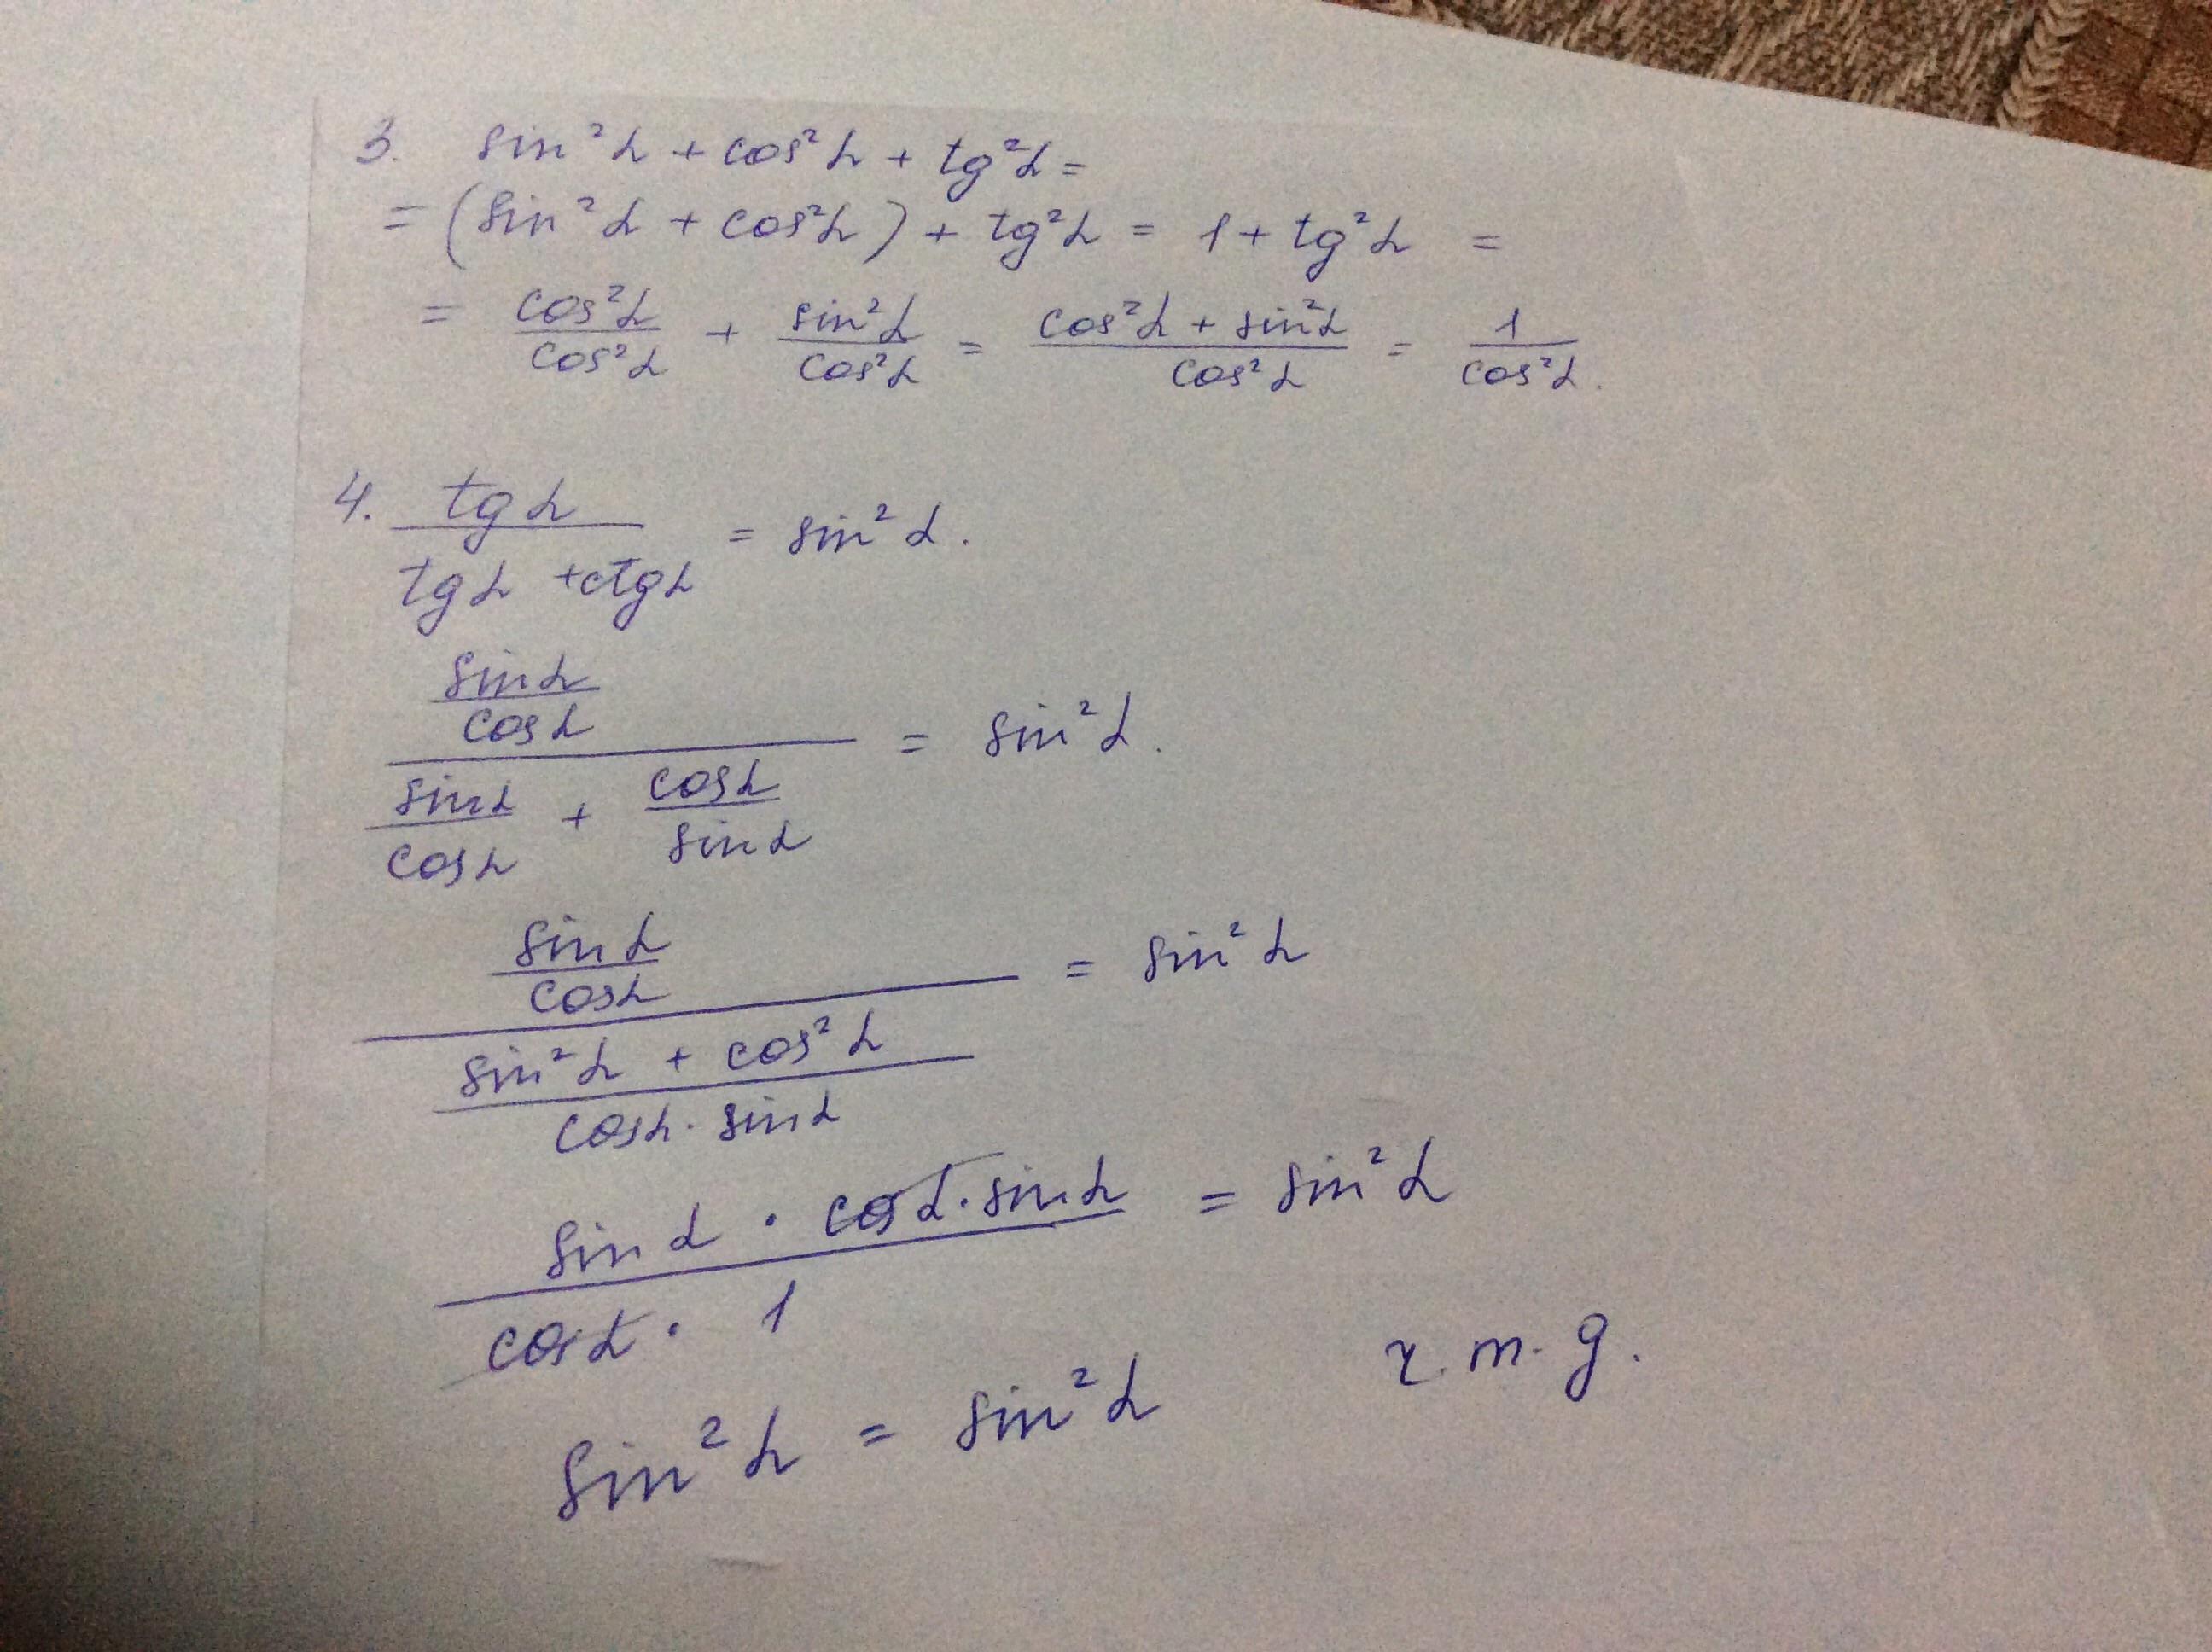 3. sin²α + cos²α + tg²α =
= (sin²α + cos²α) + tg²α = 1 + tg²α =
= cos²α/cos²α + sin²α/cos²α = (cos²α + sin²α)/cos²α = 1/cos²α.
4. tgα/(tgα + ctgα) = sin²α.
(sinα/cosα)/(sinα/cosα + cosα/sinα) = sin²α.
(sinα/cosα)/((sin²α + cos²α)/(cosα · sinα)) = sin²α
(sinα · cosα · sinα)/(cosα · 1) = sin²α
sin²α = sin²α ч.т.д.